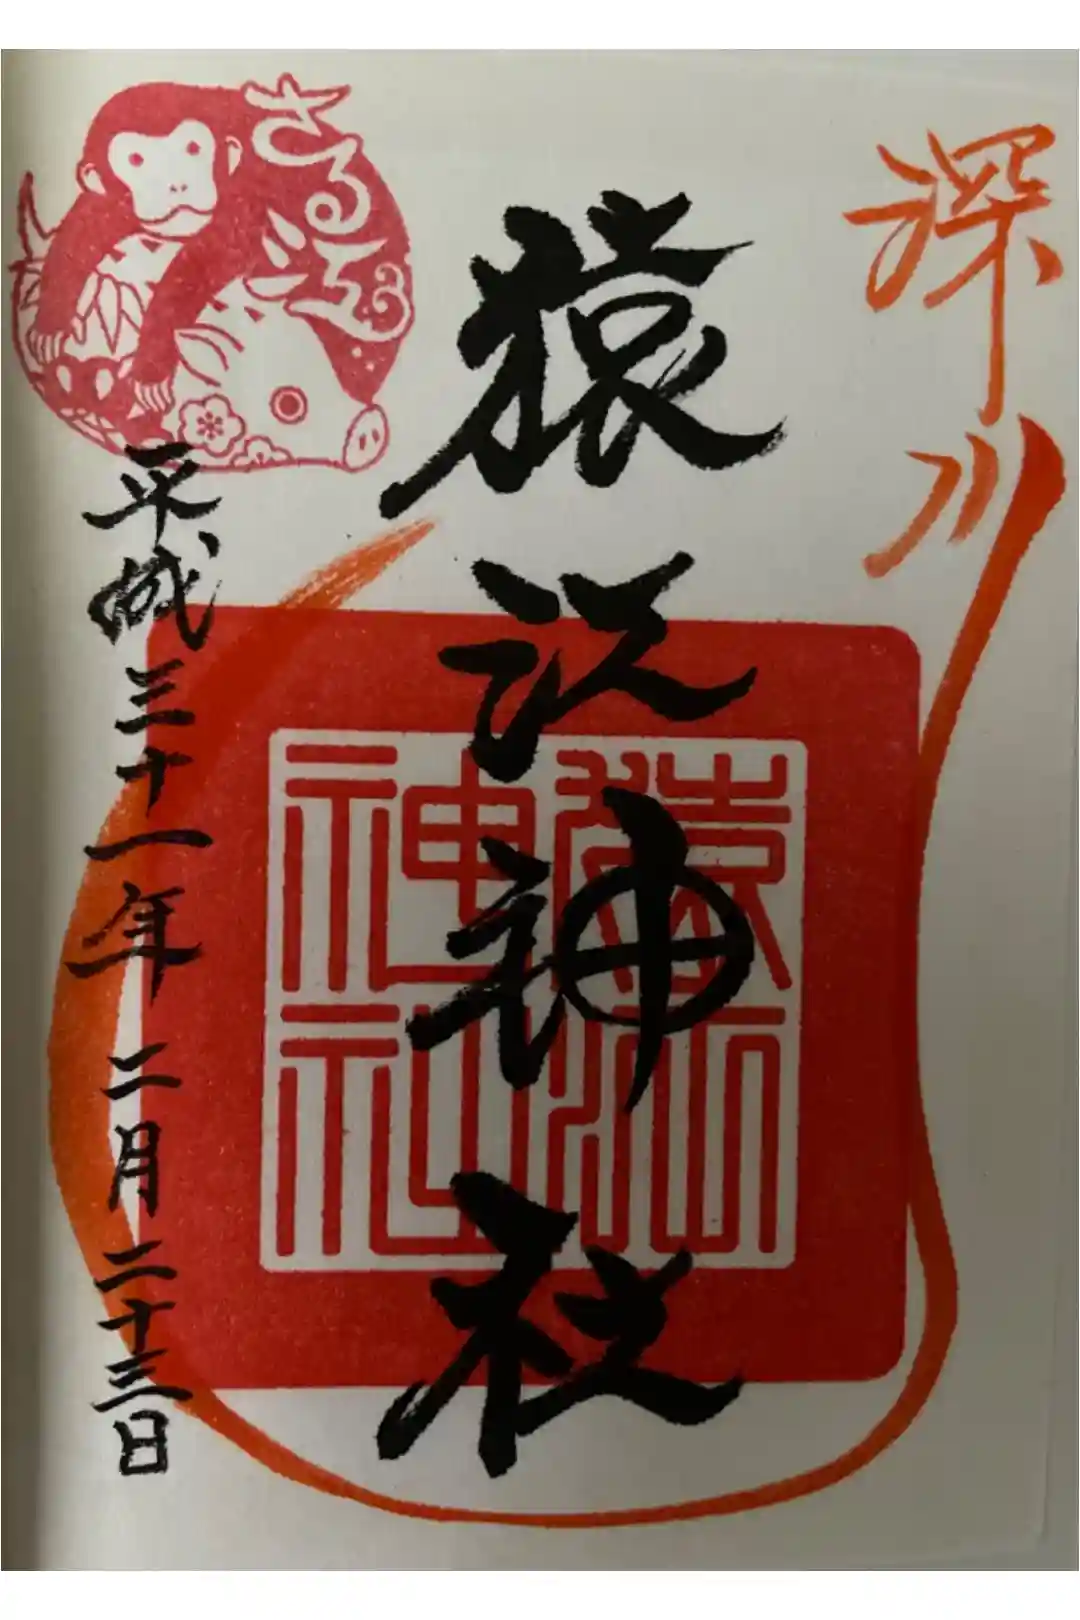 深川
猿江神社
猿江
神社
さる江
平成三十一年二月二十三日